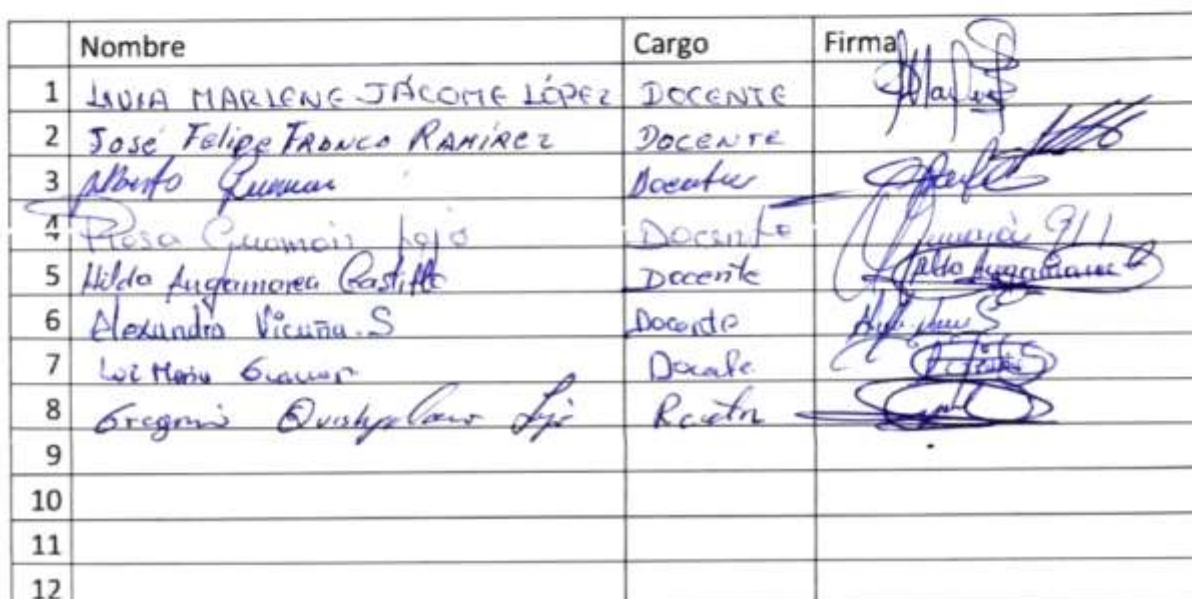 Nombre Cargo Firma
1 LIVIA MARLENE JÁCOME LÓPEZ DOCENTE
2 José Felipe FRANCO RAMÍREZ DOCENTE
3 Alberto Guaman Docente
4 Rosa Guamán Lojo Docente
5 Hilda Augamarca Castillo Docente Hilda
6 Alexandra Vicuña.S Docente
7 Luz María Guaman Docente
8 Gregorio Lojo Rector
9
10
11
12